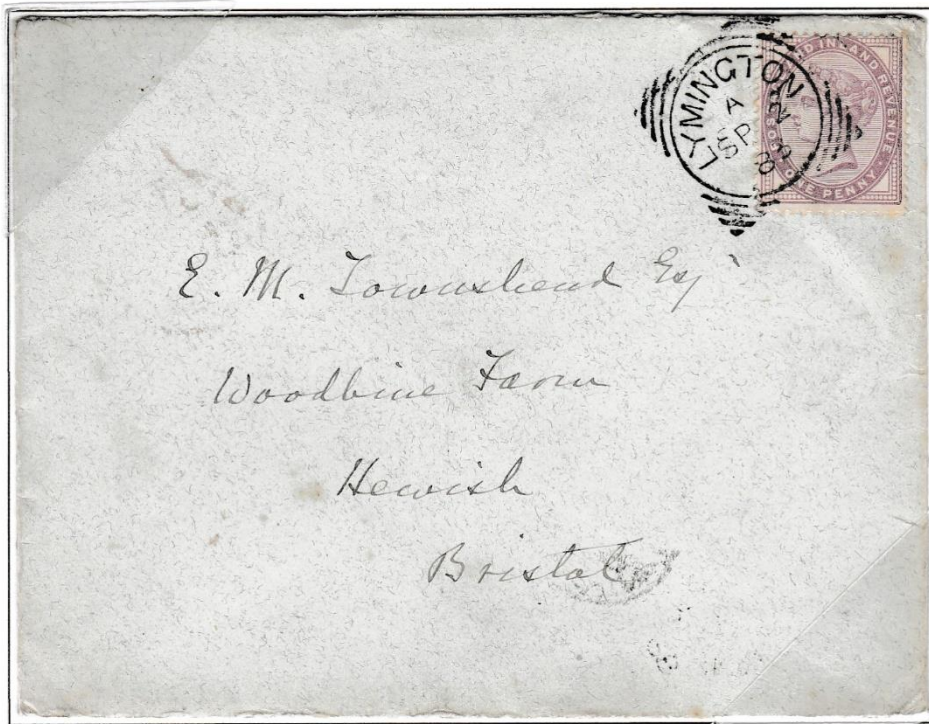 LYMINGTON
A
SP 2
POSTAGE AND INLAND REVENUE
ONE PENNY
E. M. Townshend Esqr
Woodbine Farm
Hewish
Bristol